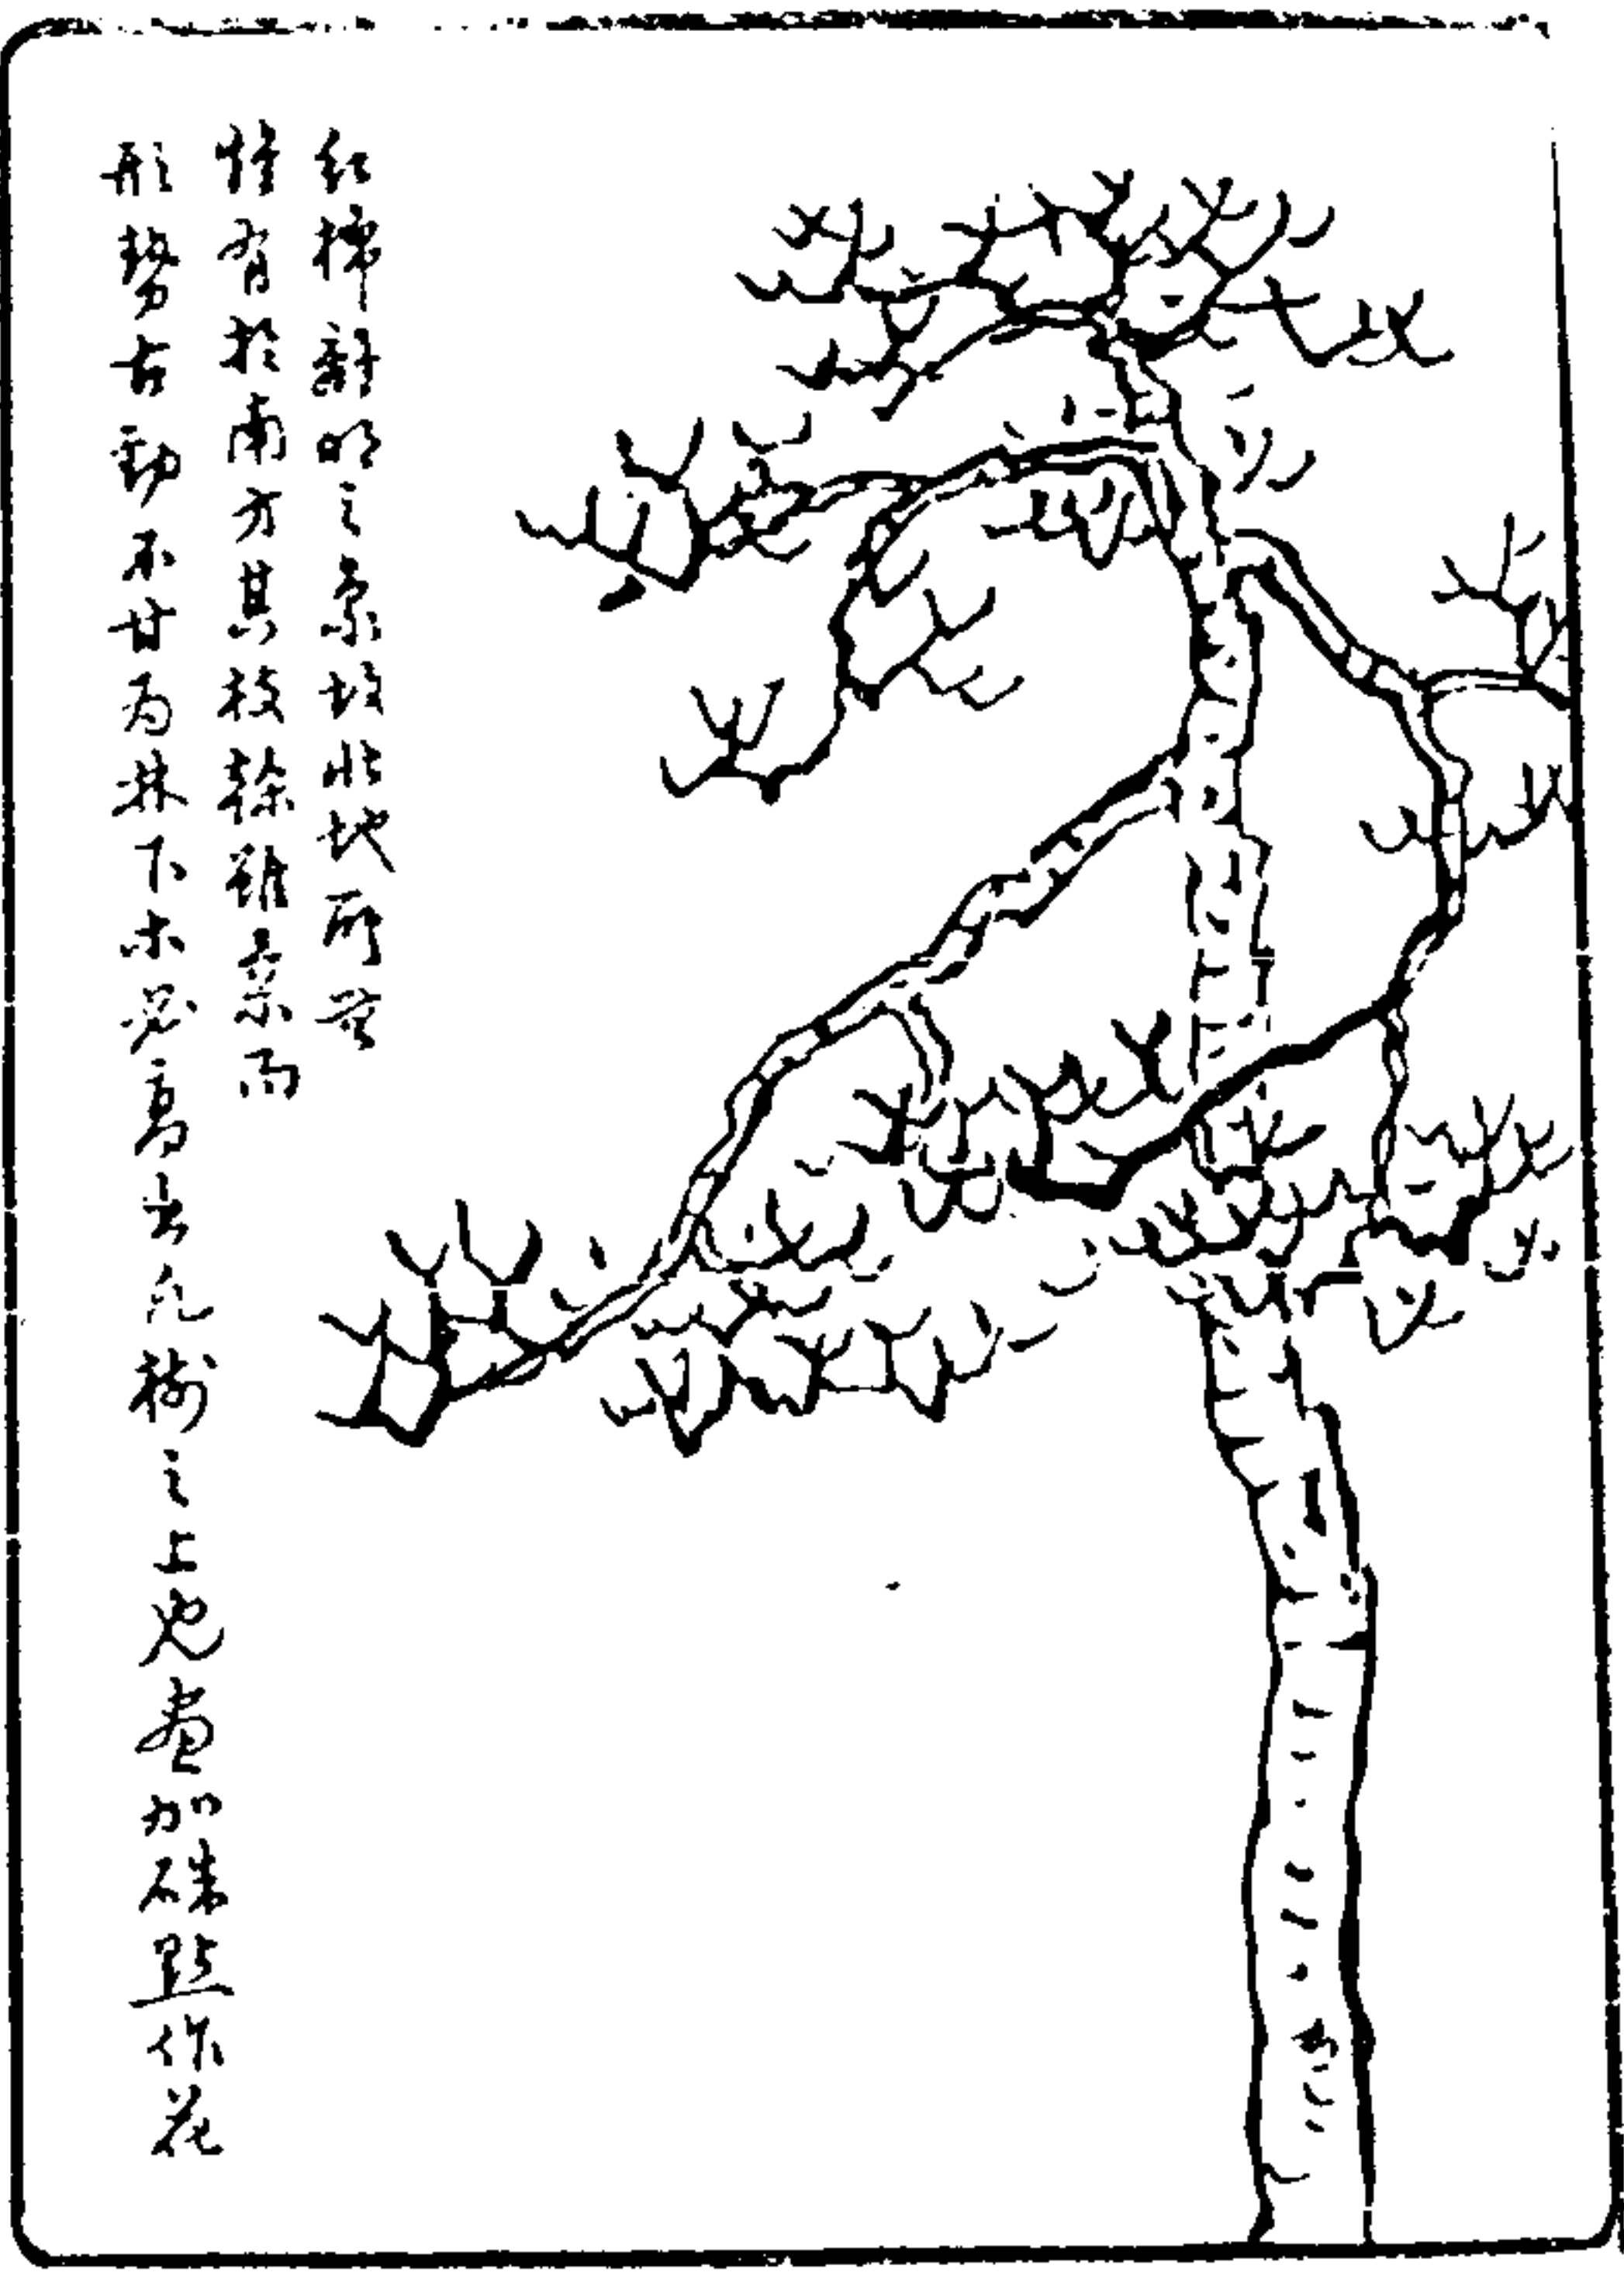 紅棉之故北地所無
特有於南方其枝條雖而
形勢古勁不甘為林下木必高出凡樹之上也畫加硃點作花